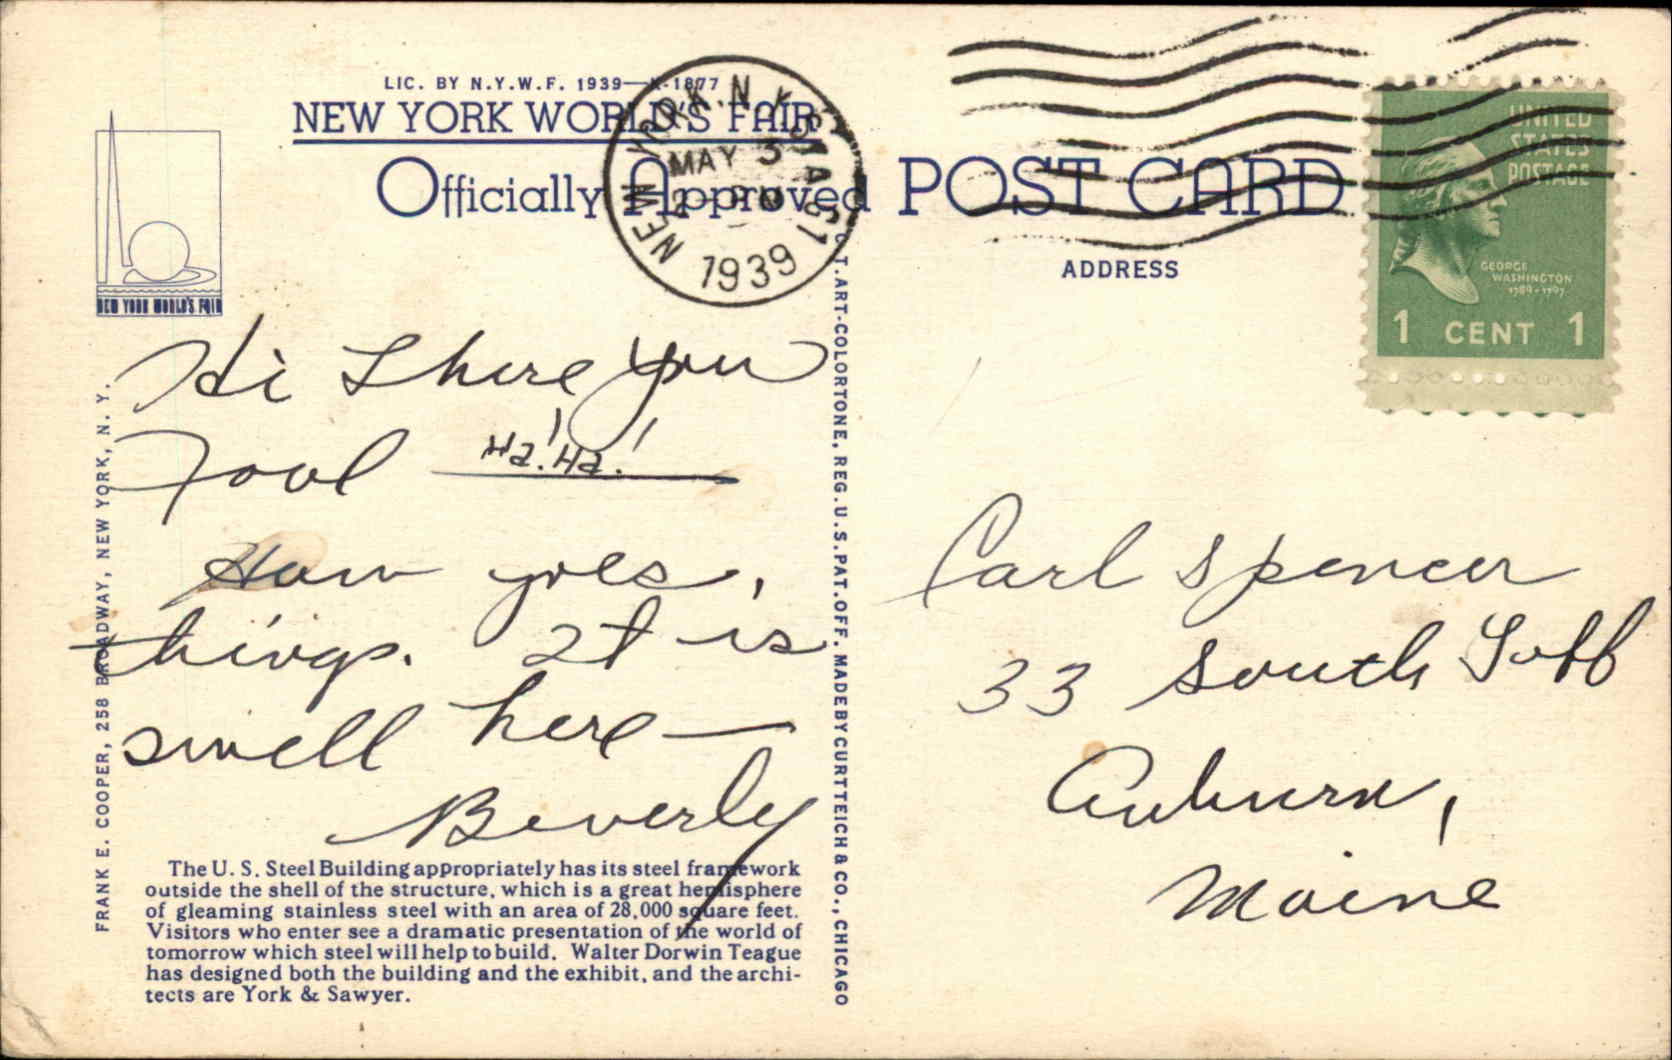 LIC. BY N.Y.W.F. 1939—
NEW YORK WORLD'S FAIR
Officially Approved POST CARD
NEW YORK, N.Y. STA. 51
MAY 3
2 PM
1939
UNITED
STATES
POSTAGE
GEORGE
WASHINGTON
1789-1797
1 CENT 1
ADDRESS
NEW YORK WORLD'S FAIR
Hi There you
Fool Ha! Ha!
How goes,
things. It is
swell here —
Beverly
Carl Spencer
33 South Goff
Auburn,
Maine
The U. S. Steel Building appropriately has its steel framework
outside the shell of the structure, which is a great hemisphere
of gleaming stainless steel with an area of 28,000 square feet.
Visitors who enter see a dramatic presentation of the world of
tomorrow which steel will help to build. Walter Dorwin Teague
has designed both the building and the exhibit, and the archi-
tects are York & Sawyer.
FRANK E. COOPER, 258 BROADWAY, NEW YORK, N. Y.
C.T. ART-COLORTONE, REG. U.S. PAT. OFF. MADE BY CURT TEICH & CO., CHICAGO